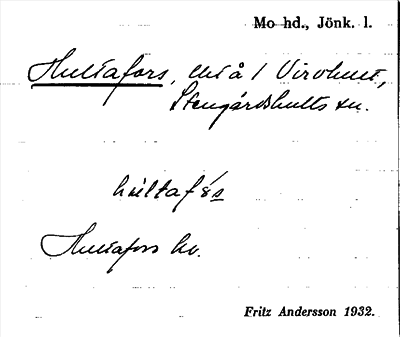 Mo hd., Jönk. l.
Hultafors, utj å 1 Virvhult,
Stengårdshults sn.
húltafòs
Hultafors hv.
Fritz Andersson 1932.